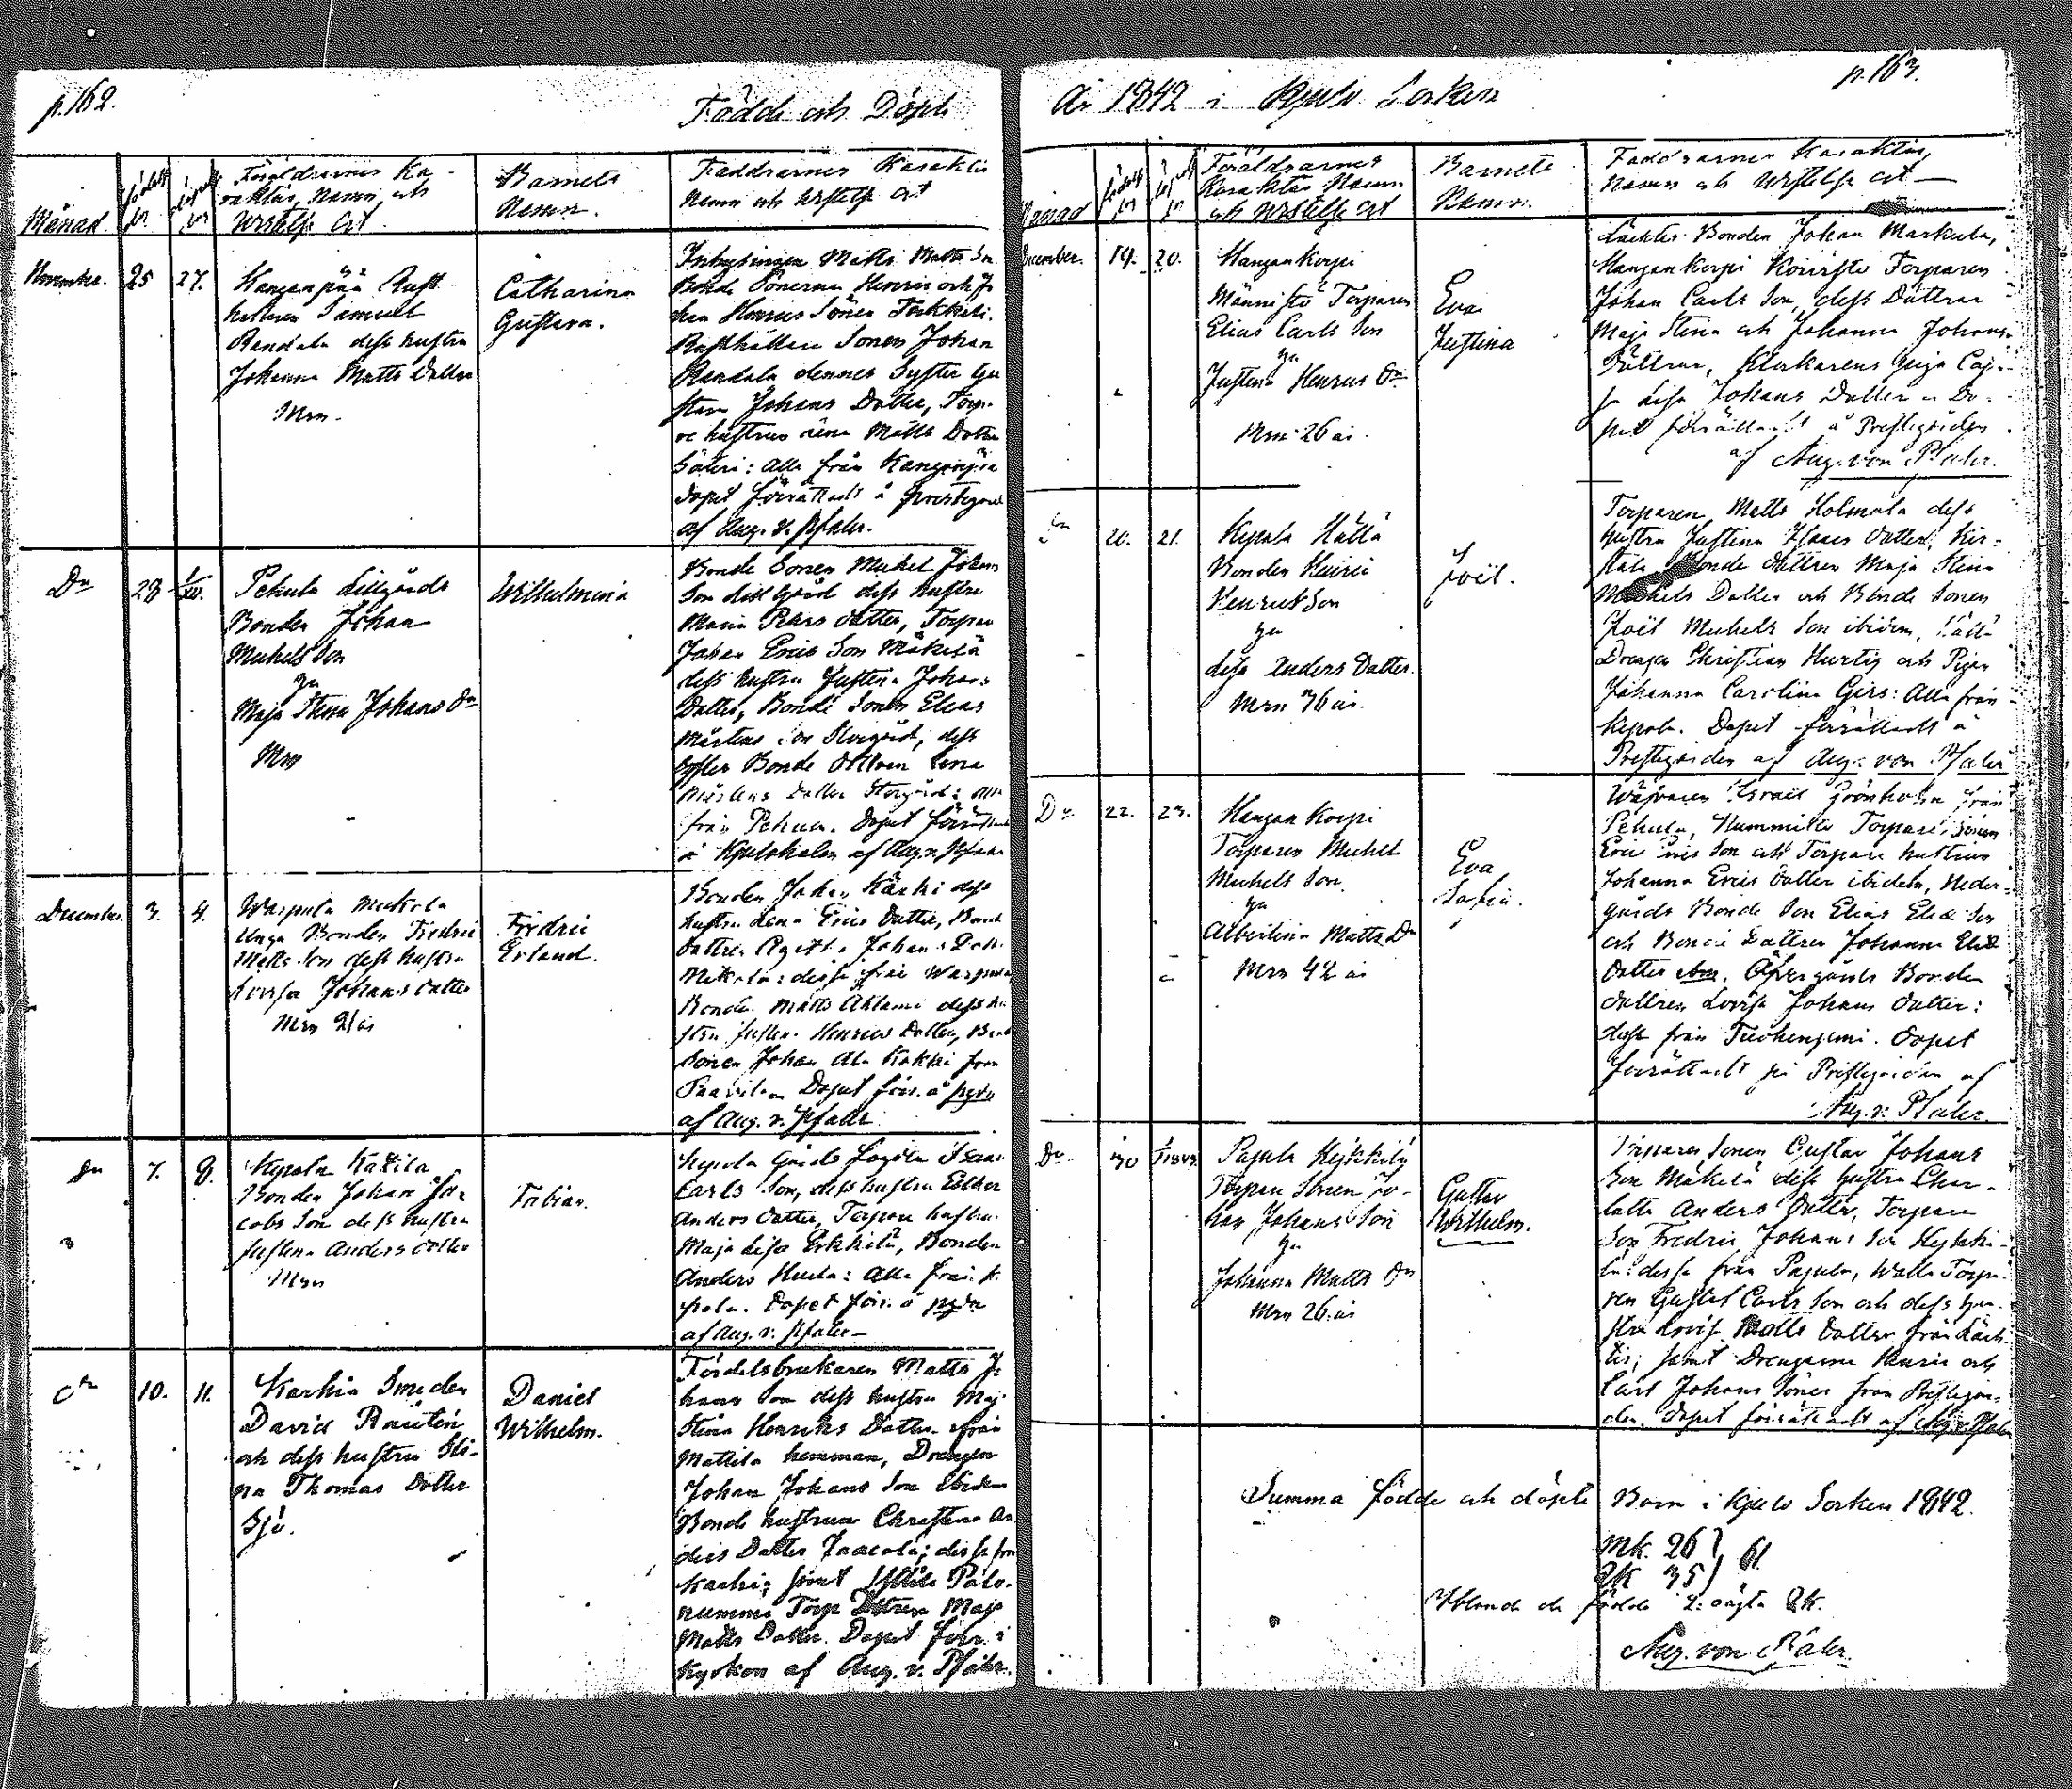 p. 162.
Födde och Döpte
Månad
födelse
Föräldrarnes Ka-
raktär, Namn och
Wistelse Ort
Barnets
Namn.
Faddrarnes Karaktär
Namn och wistelse ort
November. 25 27.
Kanganpää Rust
hållaren Samuel
Randala dess hustru
Johanna Matts Dotter
Mrn.
Catharina
Gustava.
Inhysingen Matts Matts Son
Bonde Sönerna Henric och Jo
han Henrics Söner
Rusthållare Sonen Johan
Randala dennes Syster Gu
stava Johans Dotter, Torp.
Matts Dotter
Säteri: alla från Kanganpää
dopet förrättadt å Prestegård
af Aug. v. Pfaler.
Do 28 1/XII.
Pehula Lillgårds
Bonden Johan
Michels Son
Maja Stina Johans Dr
Mrn
Wilhelmina
Bonde Sonen Michel Johans
Son Lillgård dess hustru
Maria Pehrs dotter, Torpar
Johan Erics Son Mäkilä
dess hustru Justina Johans
Dotter, Bonde Sonen Elias
Mårtens Son Storgård, dess
Syster Bonde dottren Lena
Mårtens Dotter Storgård: alla
från Pehula. Dopet förrättadt
å Kjuloholm af Aug. v. Pfaler
December. 3. 4.
Warpula Mickola
Unga Bonden Fredric
Matts Son dess hustru
Lovisa Johans dotter
Mrn 21 år
Fredric
Erland.
Bonden Johan Kärki dess
hustru Lena Erics Dotter, Bonde
dottren Agatha Johans Dott.
Mickola: dessa från Warpula,
Bonden Matts Ahlami dess hu
stru Justina Henrics Dotter, Bonde
Sonen Johan Ala Kakki från
Dopet förr. å pgdn
af Aug. v. Pfaler.
Do 7. 8.
Kepola Kaxila
Bonden Johan Ja-
cobs Son dess hustru
Justina Anders dotter
Mrn
Tobias.
Kepola Gårds fogden Isaac
Carls Son, dess hustru Esther
Anders dotter, Torpare hustru
Maja Lisa Erkkilä, Bonden
Anders: Alla från K.
pola. Dopet förr. å pgdn
af Aug. v. Pfaler
Do 10. 11.
Karhia Smeden
David Rautin
och dess hustru Sti-
na Thomas Dotter
Sjö.
Daniel
Wilhelm.
Fördelsbrukaren Matts Jo
hans Son dess hustru Maj
Stina Henriks Dotter från
Mattila hemman, Drengen
Johan Johans Son ibidem
Bonde hustrun Christina An
ders Dotter Jaacola; dessa från
Karhia; samt Palo-
nummi Torp Dottren Maja
Matts Dotter. Dopet förr. i
Kyrkan af Aug. v. Pfaler.
År 1842 i Kjulo Socken
p. 163.
Månad
Föräldrarnes
Karaktär Namn
och Wistelse Ort
Barnets
Namn.
Faddrarnes Karaktär,
Namn och Wistelse Ort
December. 19. 20.
Hangankorpi
Männistö Torparen
Elias Carls Son
Justina Henrics Dr
Mrn 26 år.
Eva
Justina
Bonden Johan Markula,
Hangankorpi Koivisto Torparen
Johan Carls Son, dess Döttrar
Maja Stina och Johanna Johans
Döttrar, Klockarens piga Caj-
sa Lisa Johans Dotter. Do-
pet förrättadt å Prestegården
af Aug. von Pfaler.
Do 20. 21.
Kepola Hällä
Bonden Henric
Henrics Son
Lisa Anders Dotter.
Mrn 36 år.
Joël.
Torparen Matts Holmala dess
hustru Justina Isaacs Dotter,
Bonde dottren Maja Stina
Michels Dotter och Bonde Sonen
Joël Michels Son ibidem,
Drengen Christian Hurtig och Pigan
Johanna Carolina Girs: Alla från
Kepola. Dopet förrättadt å
Prestegården af Aug. von Pfaler
Do 22. 23.
Hangankorpi
Torparen Michel
Michels Son.
Albertina Matts Dr
Mrn 42 år
Eva
Sofia.
Wäfvaren Israel Grönholm från
Pehula, Nummilo Torpare Sonen
Eric Erics Son och Torpare hustrun
Johanna Erics dotter ibidem, Neder-
gårds Bonde Son Elias Eliæ Son
och Bonde Dottren Johanna Eliæ
Dotter ibm. Öfvergårds Bonde
dottren Lovisa Johans dotter:
dessa från Tuohenjemi. Dopet
förrättadt på Prestegården af
Aug. v. Pfaler.
Do 30 1/1 1843.
Pajula Kyskkilä
Torpare Sonen Jo-
han Johans Son
Johanna Matts Dr
Mrn 26 år
Gustav
Wilhelm.
Torpare Sonen Gustav Johans
Son Mäkelä dess hustru Char-
lotta Anders Dotter, Torpare
Son Fredric Johans Son
la: dessa från Pajula, Walla Torpa-
ren Gustaf Carls Son och dess hu-
stru Lovisa Matts Dotter från
samt Drengarne Henric och
Carl Johans Söner från Prestegår-
den. Dopet förrättadt af Aug. v. Pfaler
Summa födde och döpte Barn i Kjulo Socken 1842.
Mk. 26
Qk 35
61.
Ibland de födde 2: oägta Qk.
Aug. von Pfaler.